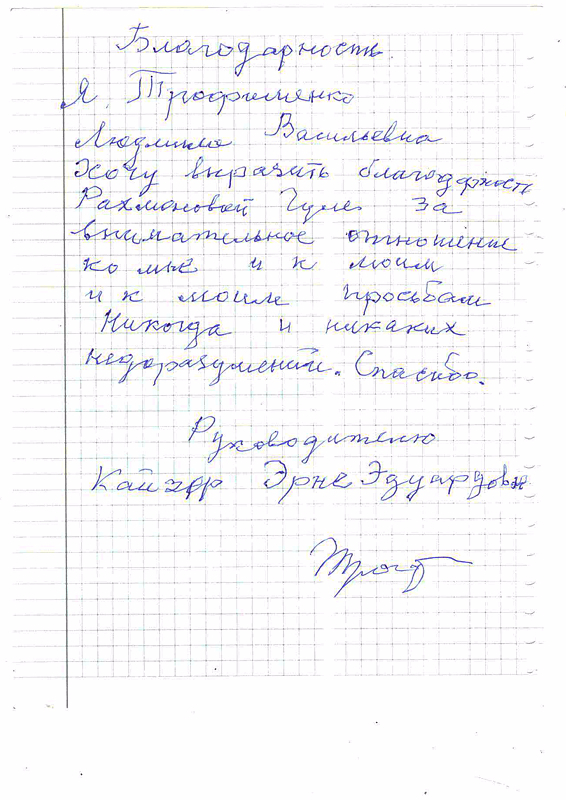 Благодарность
Я, Трофименко
Людмила Васильевна
Хочу выразить благодарность
Рахмановой Гуле за
внимательное отношение
ко мне и к моим
и к моим просьбам
Никогда и никаких
недоразумений. Спасибо.
Руководителю
Эрне Эдуардовне